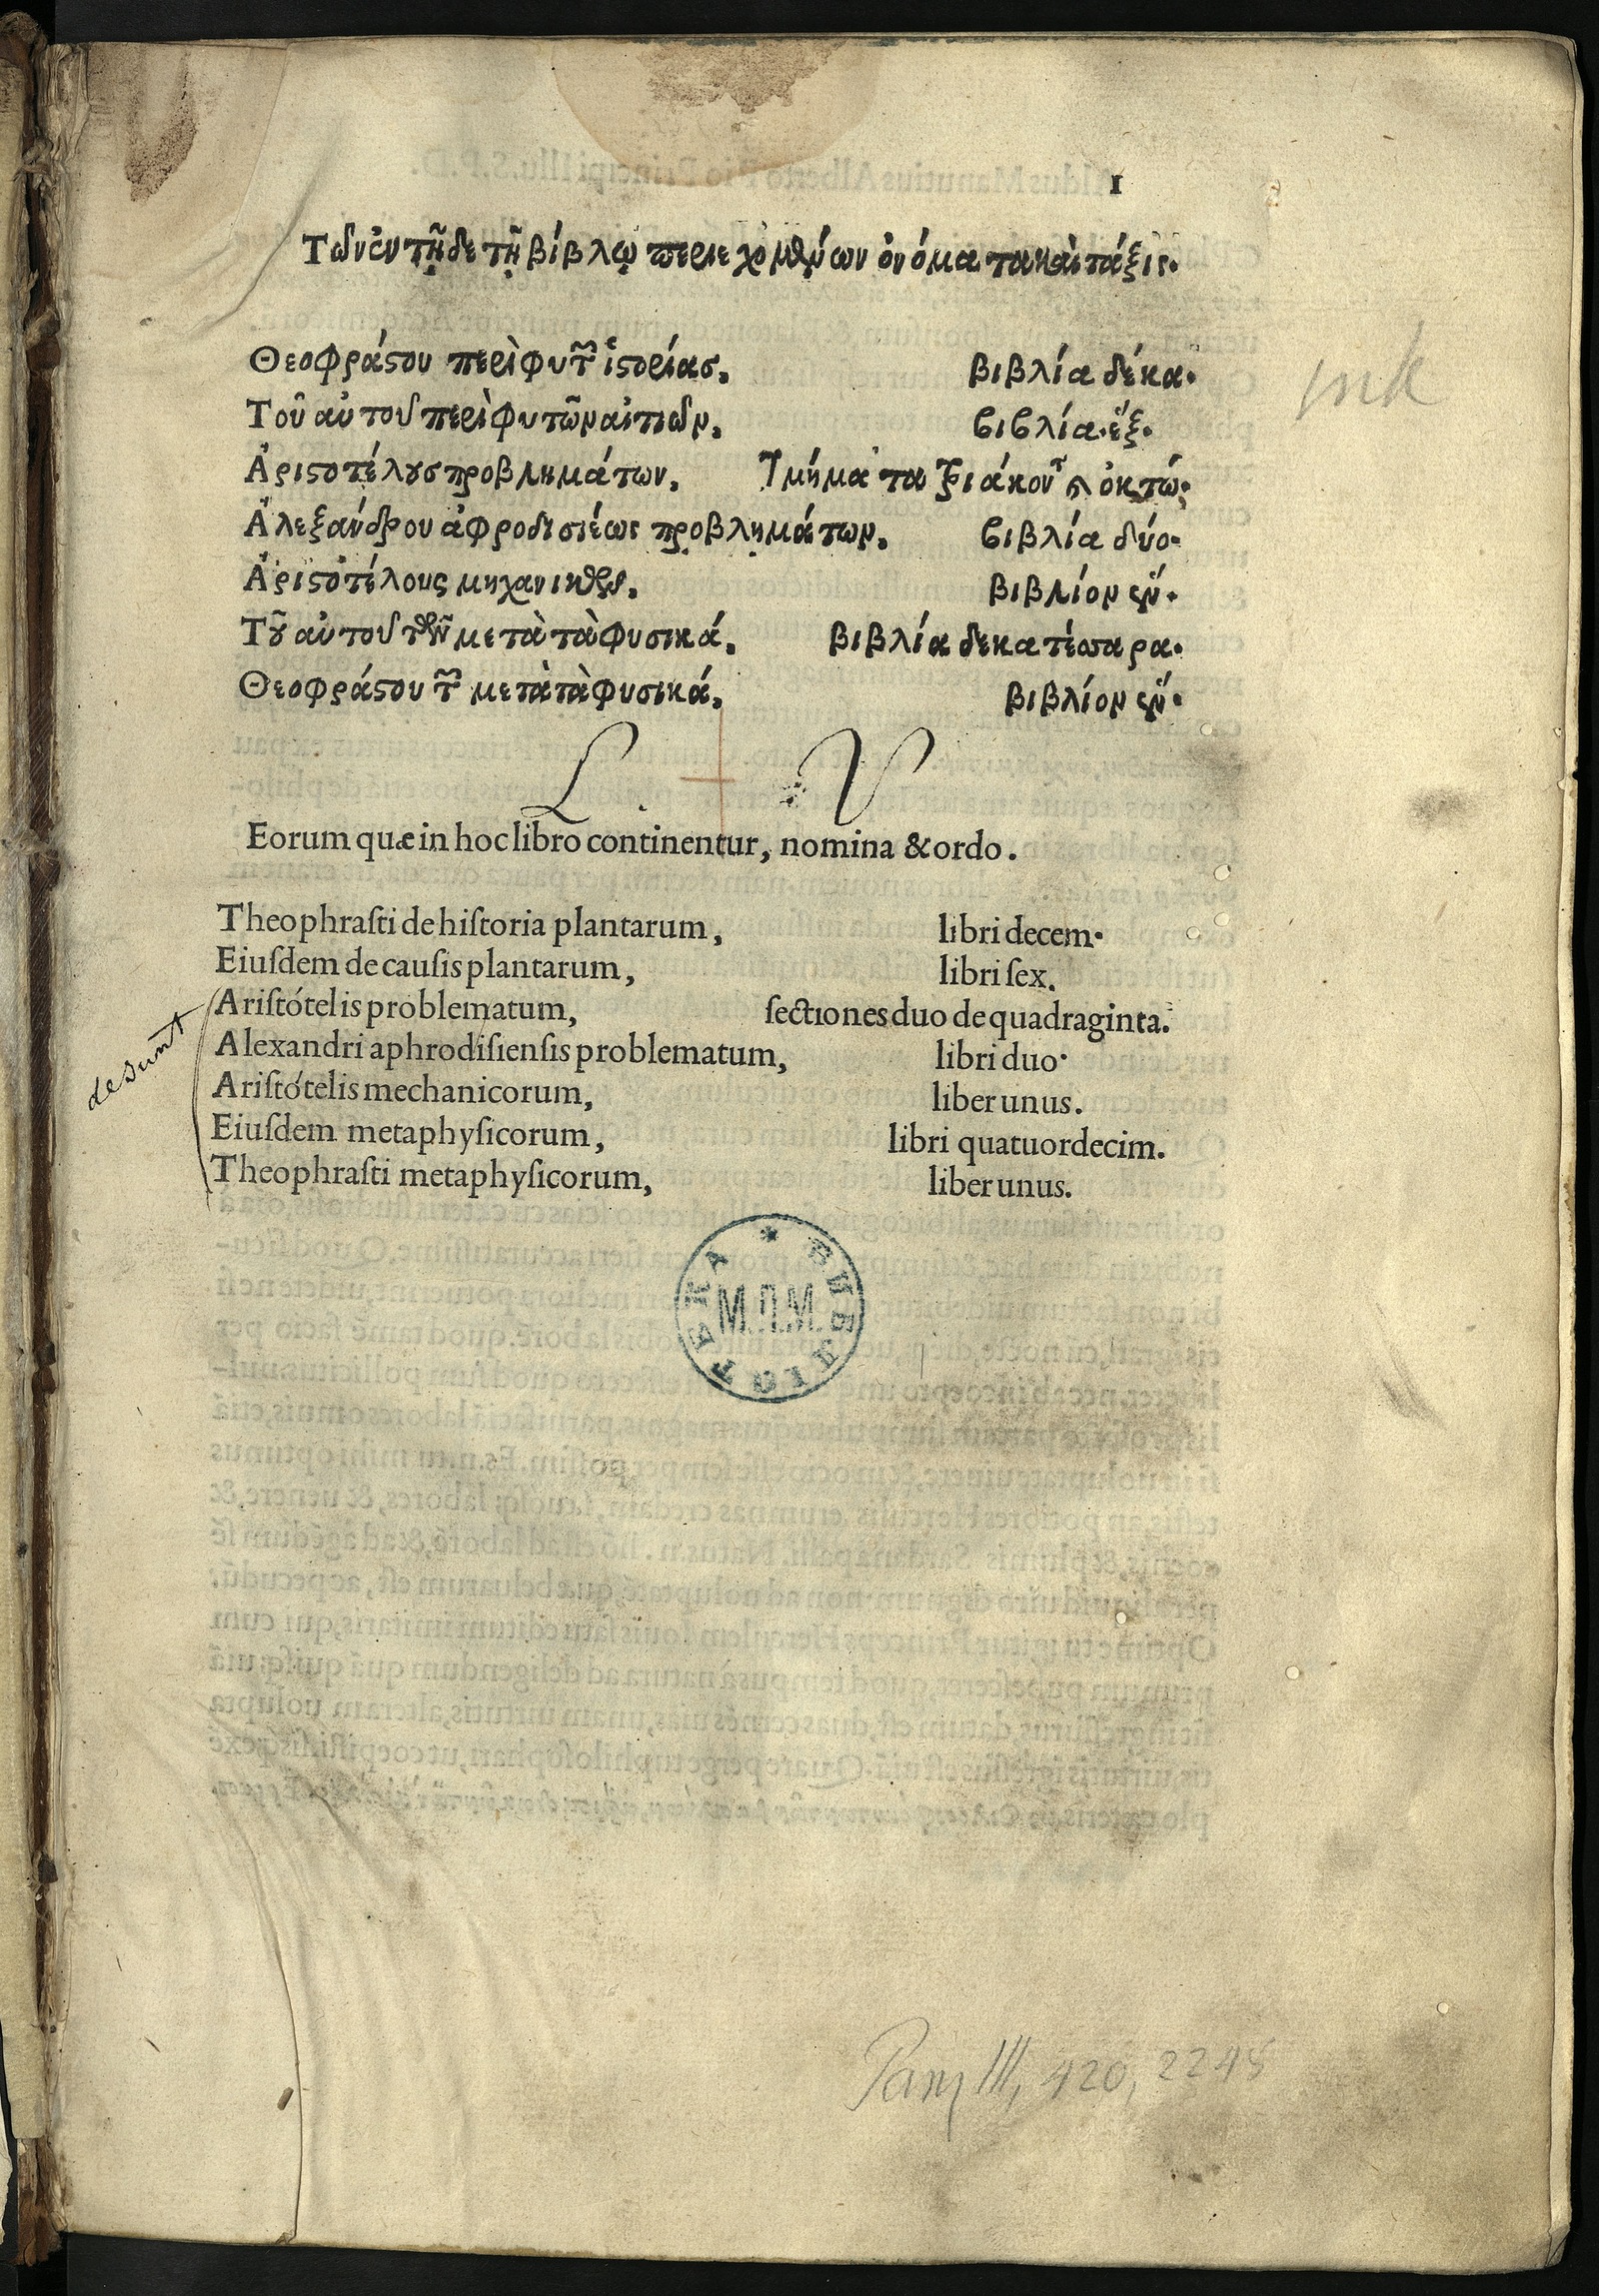 1
Τῶν ἐν τῇδε τῇ βίβλῳ περιεχομένων ὀνόματα καὶ τάξις.
Θεοφράϛου περὶ φυτῶν ἱϛορίασ, βιβλία δέκα.
Τοῦ αὐτοῦ περὶ φυτῶν αἰτιῶν, βιβλία ἕξ.
Ἀριϛοτέλουσ προβλημάτων, Τμήματα τριάκοντα καὶ ὀκτώ.
Ἀλεξάνδρου ἀφροδισιέως προβλημάτων, βιβλία δύο.
Ἀριϛοτέλους μηχανικῶν, βιβλίον ἕν.
Τοῦ αὐτοῦ τῶν μετὰ τὰ φυσικά, βιβλία δεκατέσσαρα.
Θεοφράϛου τῶν μετὰ τὰ φυσικά, βιβλίον ἕν.
L V
Eorum quæ in hoc libro continentur, nomina & ordo.
Theophraſti de hiſtoria plantarum, libri decem.
Eiuſdem de cauſis plantarum, libri ſex.
Ariſtótelis problematum, ſectiones duo de quadraginta.
Alexandri aphrodiſienſis problematum, libri duo.
Ariſtótelis mechanicorum, liber unus.
Eiuſdem metaphyſicorum, libri quatuordecim.
Theophraſti metaphyſicorum, liber unus.
desunt
М.П.М.
Panz III, 420, 2245